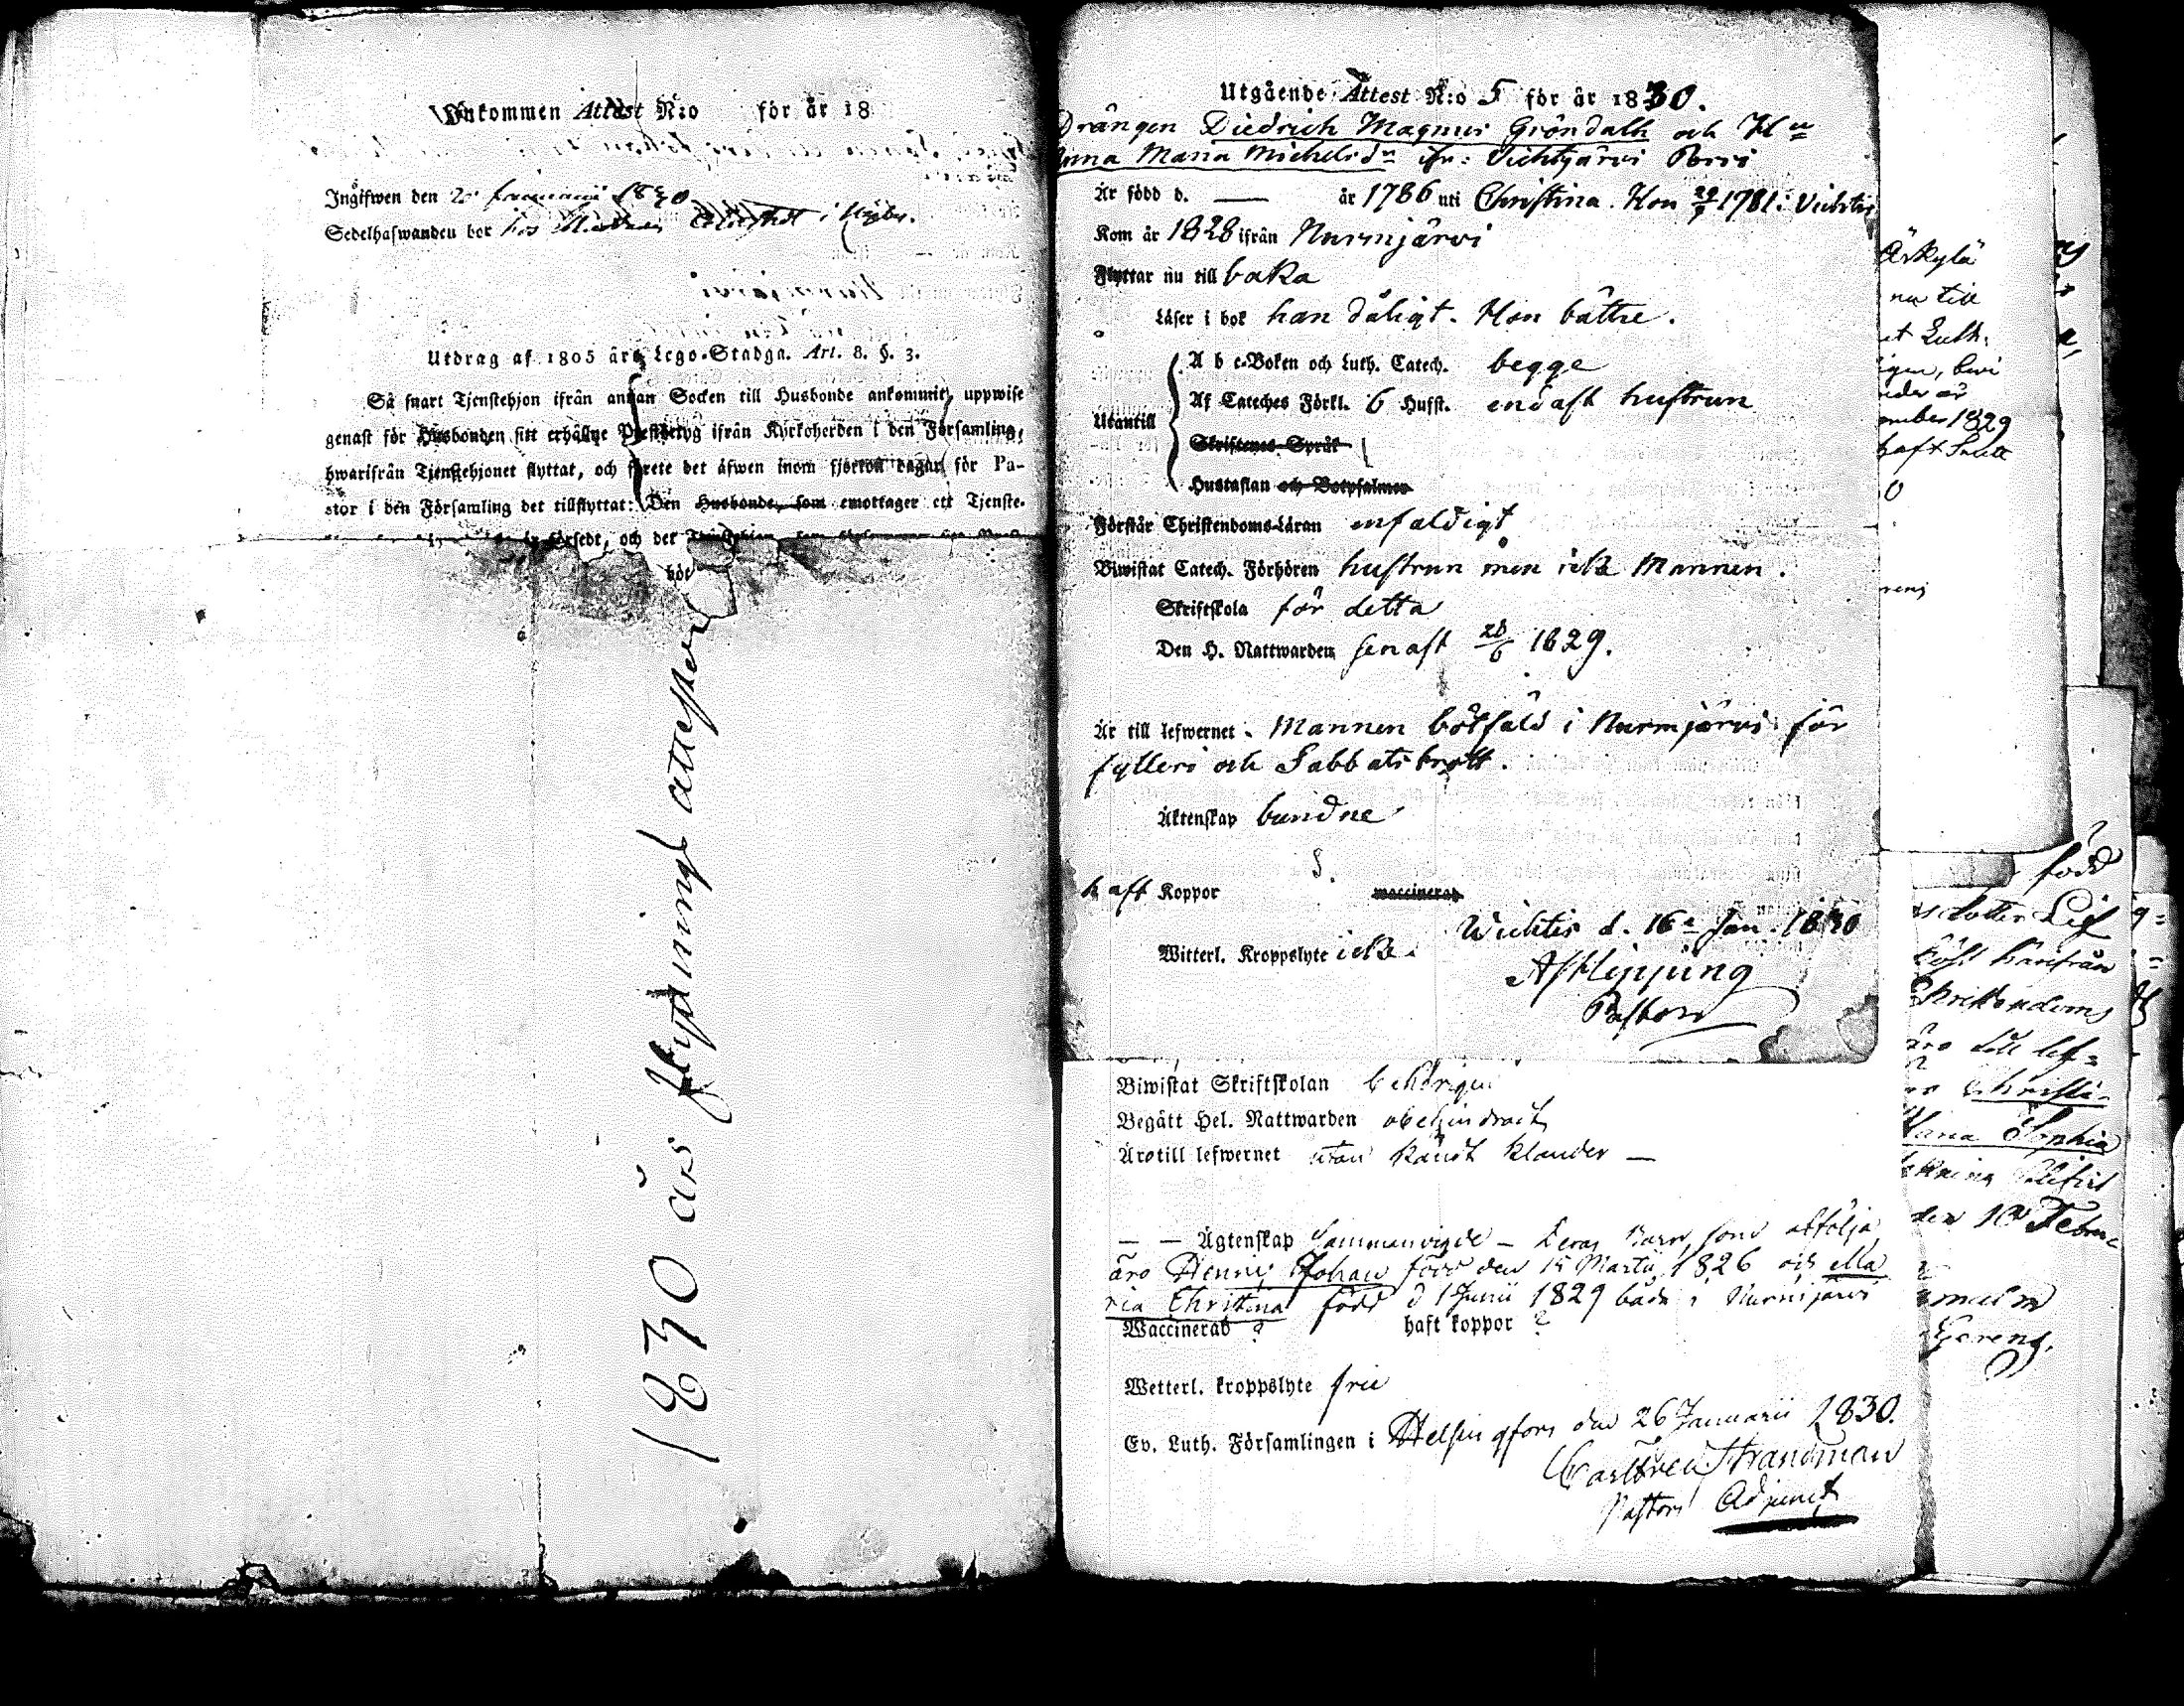 Inkommen Attest N:o för år 18
Ingifwen den 2 1830
Sedelhafwanden bor hos i
Utdrag af 1805 års Lego-Stadga. Art. 8. §. 3.
Så snart Tjenstehjon ifrån annan Socken till Husbonde ankommit, uppwise
genast för Husbonden sitt erhållne Prestbetyg ifrån Kyrkoherden i den Församling,
hwarifrån Tjenstehjonet flyttat, och förete det äfwen inom fjorton dagar för Pa-
stor i den Församling det tillflyttat: Den Husbonde, som emottager ett Tjenste-
försedt, och det
böt
1830 års flyttnings attester
Utgående Attest N:o 5 för år 1830.
Drängen Diedrich Magnus Gröndalh och H
Anna Maria Michelsd:r ifr: Vichtjärvi
Är född d. — år 1786 uti Christina. Hon 29/9 1781 i Vichtis
Kom år 1828 ifrån Nurmjärvi
Flyttar nu till baka
Läser i bok han dåligt. Hon bättre.
A b c-Boken och Luth. Catech. begge
Af Cateches Förkl. 6 Hufst. endast hustrun
Utantill
Skriftenes Språk
Hustaflan och Botpsalmen
Förstår Christendoms-Läran enfaldigt
Biwistat Catech. Förhören hustrun men icke Mannen.
Skriftskola för detta
Den H. Nattwarden senast 28/6 1829.
Är till lefwernet. Mannen bötfäld i Nurmjärvi för
fylleri och Sabbatsbrott.
Äktenskap bundne
haft Koppor vaccinerad
Wichtis d. 16 Jan. 1830
Witterl. Kroppslyte icke.
Pastor
Biwistat Skriftskolan behörigen
Begått Hel. Nattwarden obehindradt
Äro till lefwernet utan kändt klander —
— — Ägtenskap Sammanvigde — Deras Barn, som åtfölja
äro Henric Johan född den 15 Martii 1826 och Ma
ria Christina född d 1 Junii 1829 båda i Nurmijärvi
Waccinerad ? haft koppor ?
Wetterl. kroppslyte frie
Ev. Luth. Församlingen i Helsingfors den 26 Januarii 1830.
Carl Fred Strandman
Pastors Adjunct
nu till
et Luth.
ember 1829
haft
född
härifrån
Christendoms
äro till lef=
Christi-
Maria Sophia